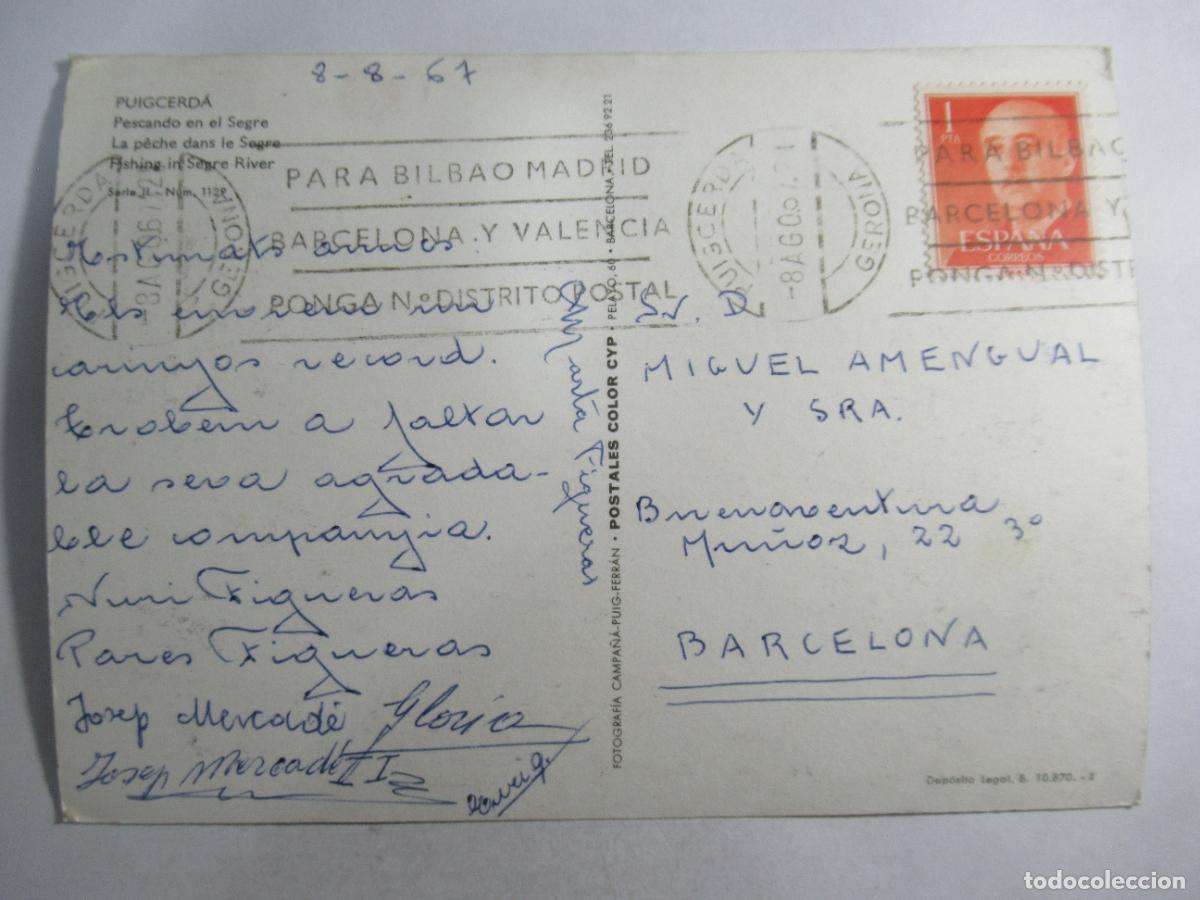 8-8-67
PUIGCERDÁ
Pescando en el Segre
La pêche dans le Segre
Fishing in Segre River
Serie II - Núm. 1129
PARA BILBAO MADRID
BARCELONA Y VALENCIA
PONGA Nº DISTRITO POSTAL
PUIGCERDA
GERONA
1
PTA
ESPAÑA
CORREOS
PARA BILBAO
BARCELONA Y
PONGA Nº DISTR
Estimats amics:
Els enviem un
carinyos record.
Trobem a faltar
la seva agrada-
ble companyia.
Nuri Figueras
Pares Figueras
Josep Mercadé Gloria
Josep Mercadé II
Marta Figueras
FOTOGRAFÍA CAMPAÑÁ-PUIG-FERRÁN · POSTALES COLOR CYP · PELAYO, 60 · BARCELONA · TEL. 236 92 21
Sr. D.
MIGUEL AMENGUAL
Y SRA.
Buenaventura
Muñoz, 22 3º
BARCELONA
Depósito Legal. B. 10.870.-
todocoleccion